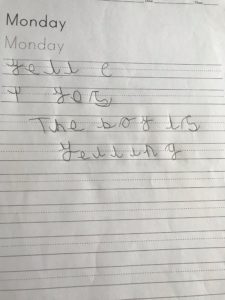 Monday
Monday
yell e
The boy is
yelling